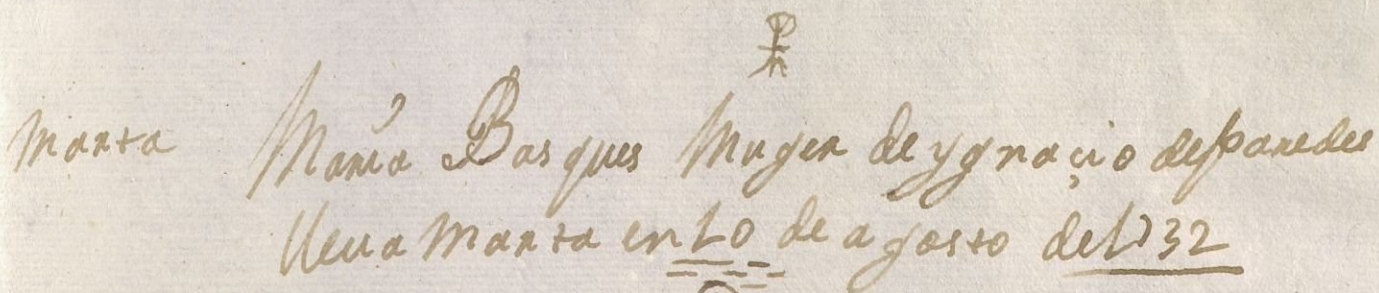 manta María Basques Muger de ygnaçio de paredes
lleua manta en 20 de agosto de 1732